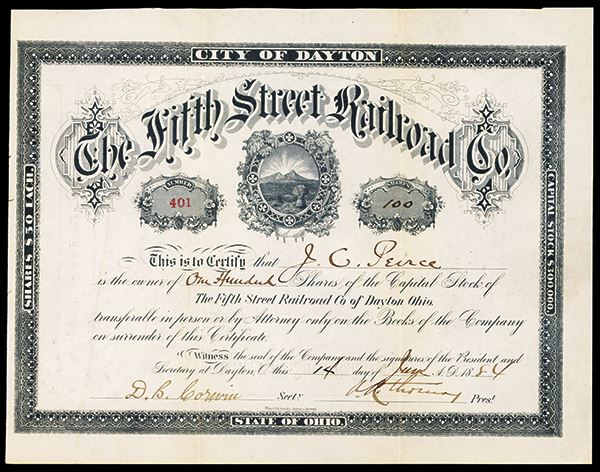 CITY OF DAYTON
The Fifth Street Railroad Co.
NUMBER
401
SHARES
100
SHARES $50 EACH.
CAPITAL STOCK $300,000.
This is to Certify that J. C. Peirce
is the owner of One Hundred Shares of the Capital Stock of
The Fifth Street Railroad Co of Dayton Ohio.
transferable in person or by Attorney only on the Books of the Company
on surrender of this Certificate.
Witness the seal of the Company and the signatures of the President and
Secretary at Dayton, O. this 14 day of A.D. 1884
D. B. Corwin Sect: Prest
STATE OF OHIO.